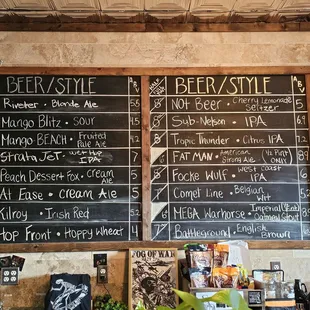 BEER/STYLE ABV
Riveter • Blonde Ale 5
Mango Blitz • Sour 4.5
Mango BEACH • Fruited Pale Ale
StrataJet • Wet Hop IPA 7
Peach Dessert Fox • Cream Ale 5
At Ease • Cream Ale 5
Kilroy • Irish Red 5.2
Hop Front • Hoppy Wheat 4
BEER/STYLE ABV
Not Beer • Cherry Lemonade Seltzer 5
Sub-Nelson • IPA 6.9
Tropic Thunder • Citrus IPA
FAT MAN • American Strong Ale
Focke Wulf • West Coast IPA
Comet Line • Belgian Wit
MEGA Warhorse • Imperial Oatmeal Stout
Battleground • English Brown
FOG OF WAR